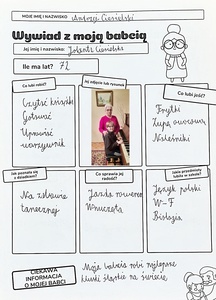 MOJE IMIĘ I NAZWISKO Andrzej Ciesielski
Wywiad z moją babcią
Jej imię i nazwisko: Jolanta Ciesielska
Ile ma lat? 72
Co lubi robić?
Czytać książki
Gotować
Uprawiać
warzywnik
Jej zdjęcie lub rysunek
Co lubi jeść?
Frytki
Zupa owocowa
Naleśniki
Jak poznała się
z dziadkiem?
Na zabawie
tanecznej
Co sprawia jej
radość?
Jazda rowerem
Wnuczęta
Jakie przedmioty
lubiła w szkole?
Język polski
W-F
Biologia
CIEKAWA
INFORMACJA
O MOJEJ BABCI
Moja babcia robi najlepsze
kluski śląskie na świecie.